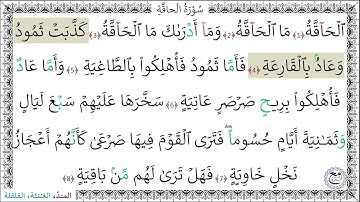 سُورَةُ الحَاقَّةِ
ٱلۡحَآقَّةُ (1) مَا ٱلۡحَآقَّةُ (2) وَمَآ أَدۡرَىٰكَ مَا ٱلۡحَآقَّةُ (3) كَذَّبَتۡ ثَمُودُ
وَعَادُۢ بِٱلۡقَارِعَةِ (4) فَأَمَّا ثَمُودُ فَأُهۡلِكُواْ بِٱلطَّاغِيَةِ (5) وَأَمَّا عَادٌ
فَأُهۡلِكُواْ بِرِيحٖ صَرۡصَرٍ عَاتِيَةٖ (6) سَخَّرَهَا عَلَيۡهِمۡ سَبۡعَ لَيَالٖ
وَثَمَٰنِيَةَ أَيَّامٍ حُسُومٗاۖ فَتَرَى ٱلۡقَوۡمَ فِيهَا صَرۡعَىٰ كَأَنَّهُمۡ أَعۡجَازُ
نَخۡلٍ خَاوِيَةٖ (7) فَهَلۡ تَرَىٰ لَهُم مِّنۢ بَاقِيَةٖ (8)
المدّ، الغنّة، القلقلة